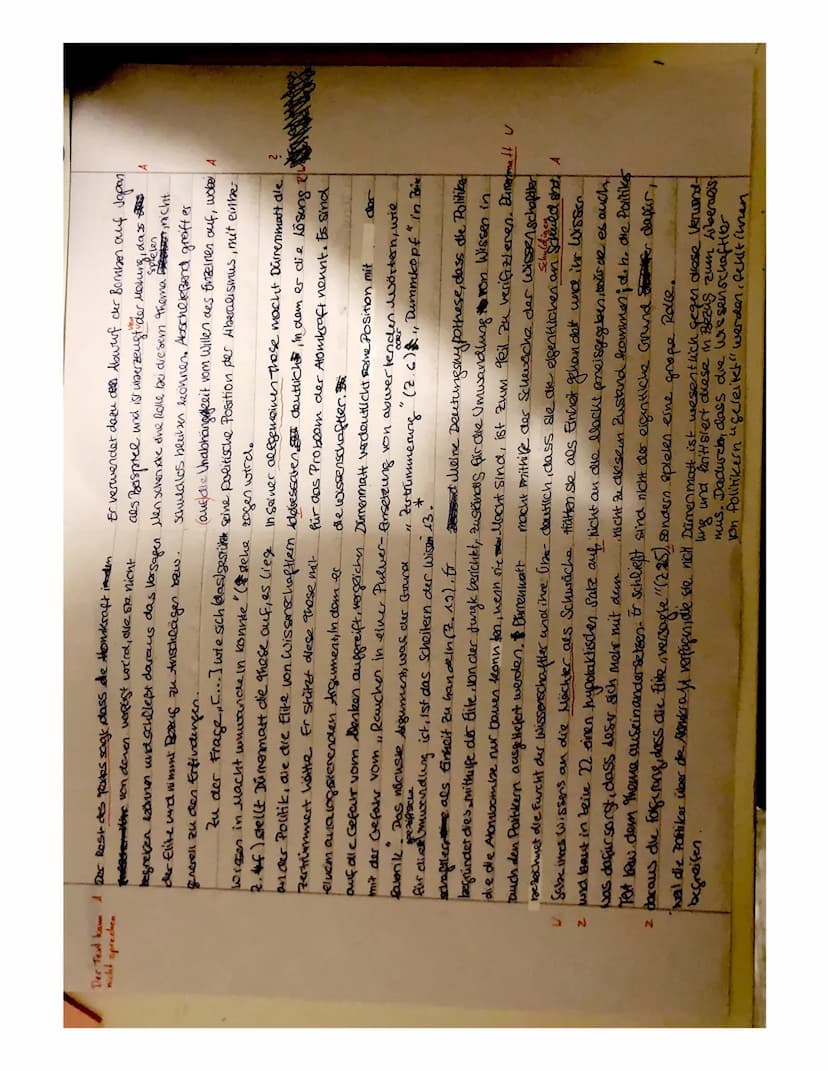 Der Text kann
nicht sprechen
Der Rest des Textes sagt, dass die Atomkraft in den
von denen verfasst wird, die sie nicht
begreifen können und schließt daraus das Versagen
der Elite und nimmt Bezug zu Anschlägen bzw.
generell zu den Erfindungen.
Zu der Frage „[...] wie sich das
Wissen in Macht umwandeln konnte“ (siehe
Z. 4f) stellt Dürrenmatt die These auf, es liege
an der Politik, die die Elite von Wissenschaftlern
zertrümmert hätte. Er stützt diese These mit
einem analogisierenden Argument, in dem er
auf die Gefahr vom Denken aufgreift, verglichen
mit der Gefahr vom „Rauchen in einer Pulver-
fabrik“. Das nächste Argument, was der Grund
für die Umwandlung ist, ist das Scheitern der Wissen
schaftler als Einheit zu handeln (Z. 12). Er
begründet dies mithilfe der Elite, von der Junge berichtet,
die die Atombombe nur bauen konnten, wenn sie
durch den Politikern ausgeliefert werden. Dürrenmatt
bezeichnet die Furcht der Wissenschaftler und ihre Über-
gabe ihres Wissens an die Mächte als Schwäche
und baut in Zeile 22 einen hypotaktischen Satz auf,
was dafür sorgt, dass Leser sich mehr mit dem
Text bzw. dem Thema auseinandersetzen. Er schließt
daraus die Folgerung, dass die Elite „versagte“ (Z. 25),
weil die Politiker über die Atomkraft verfügen, die sie nicht
begreifen.
Er verwendet dazu den Abwurf der Bomben auf Japan
als Beispiel und ist überzeugt von der Meinung, dass
Menschen wie eine Rolle bei diesem Thema spielen, nicht
schuldlos bleiben können. Abschließend greift er
(auf) die Unabhängigkeit vom Willen des Einzelnen auf, wobei
seine politische Position, der Liberalismus, mit einbe-
zogen wird.
In seiner allgemeinen These macht Dürrenmatt die
Adressaten deutlich, in dem er die Lösung
für das Problem der Atomkraft nennt. Es sind
die Wissenschaftler.
Dürrenmatt verdeutlicht seine Position mit der
Einsetzung von abwertenden Wörtern, wie
„Zertrümmerung“ (Z. 6) oder „Dummkopf“ in Zeile
13. *
Meine Deutungshypothese, dass die Politiker
zuständig für die Umwandlung von Wissen in
Macht sind, ist zum Teil zu verifizieren. Dürrenmatt
macht mithilfe der Schwäche der Wissenschaftler
deutlich, dass sie die eigentlichen Schuldigen sind.
Hätten sie als Einheit gehandelt und ihr Wissen
nicht an die Macht preisgegeben, würde es auch
nicht zu diesem Zustand kommen, d.h. die Politiker
sind nicht der eigentliche Grund dafür,
sondern spielen eine große Rolle.
Dürrenmatt ist wesentlich gegen diese Umwand-
lung und kritisiert diese in Bezug zum Liberalis-
mus. Dadurch, dass die Wissenschaftler
von Politikern "geleitet" werden, fehlt ihnen